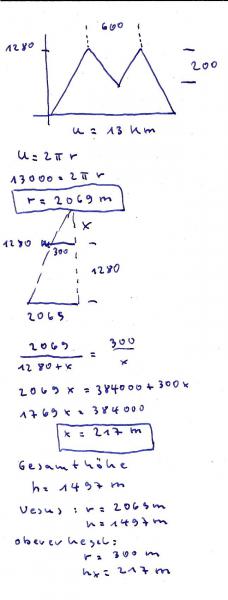 600
1280
200
u = 13 km
u = 2π r
13000 = 2π r
r = 2069 m
x
1280
300
1280
2069
2069 / 1280 + x = 300 / x
2069 x = 384000 + 300x
1769 x = 384000
x = 217 m
Gesamthöhe
h = 1497 m
Vesuv: r = 2069 m
h = 1497 m
oberer Kegel:
r = 300 m
hx = 217 m